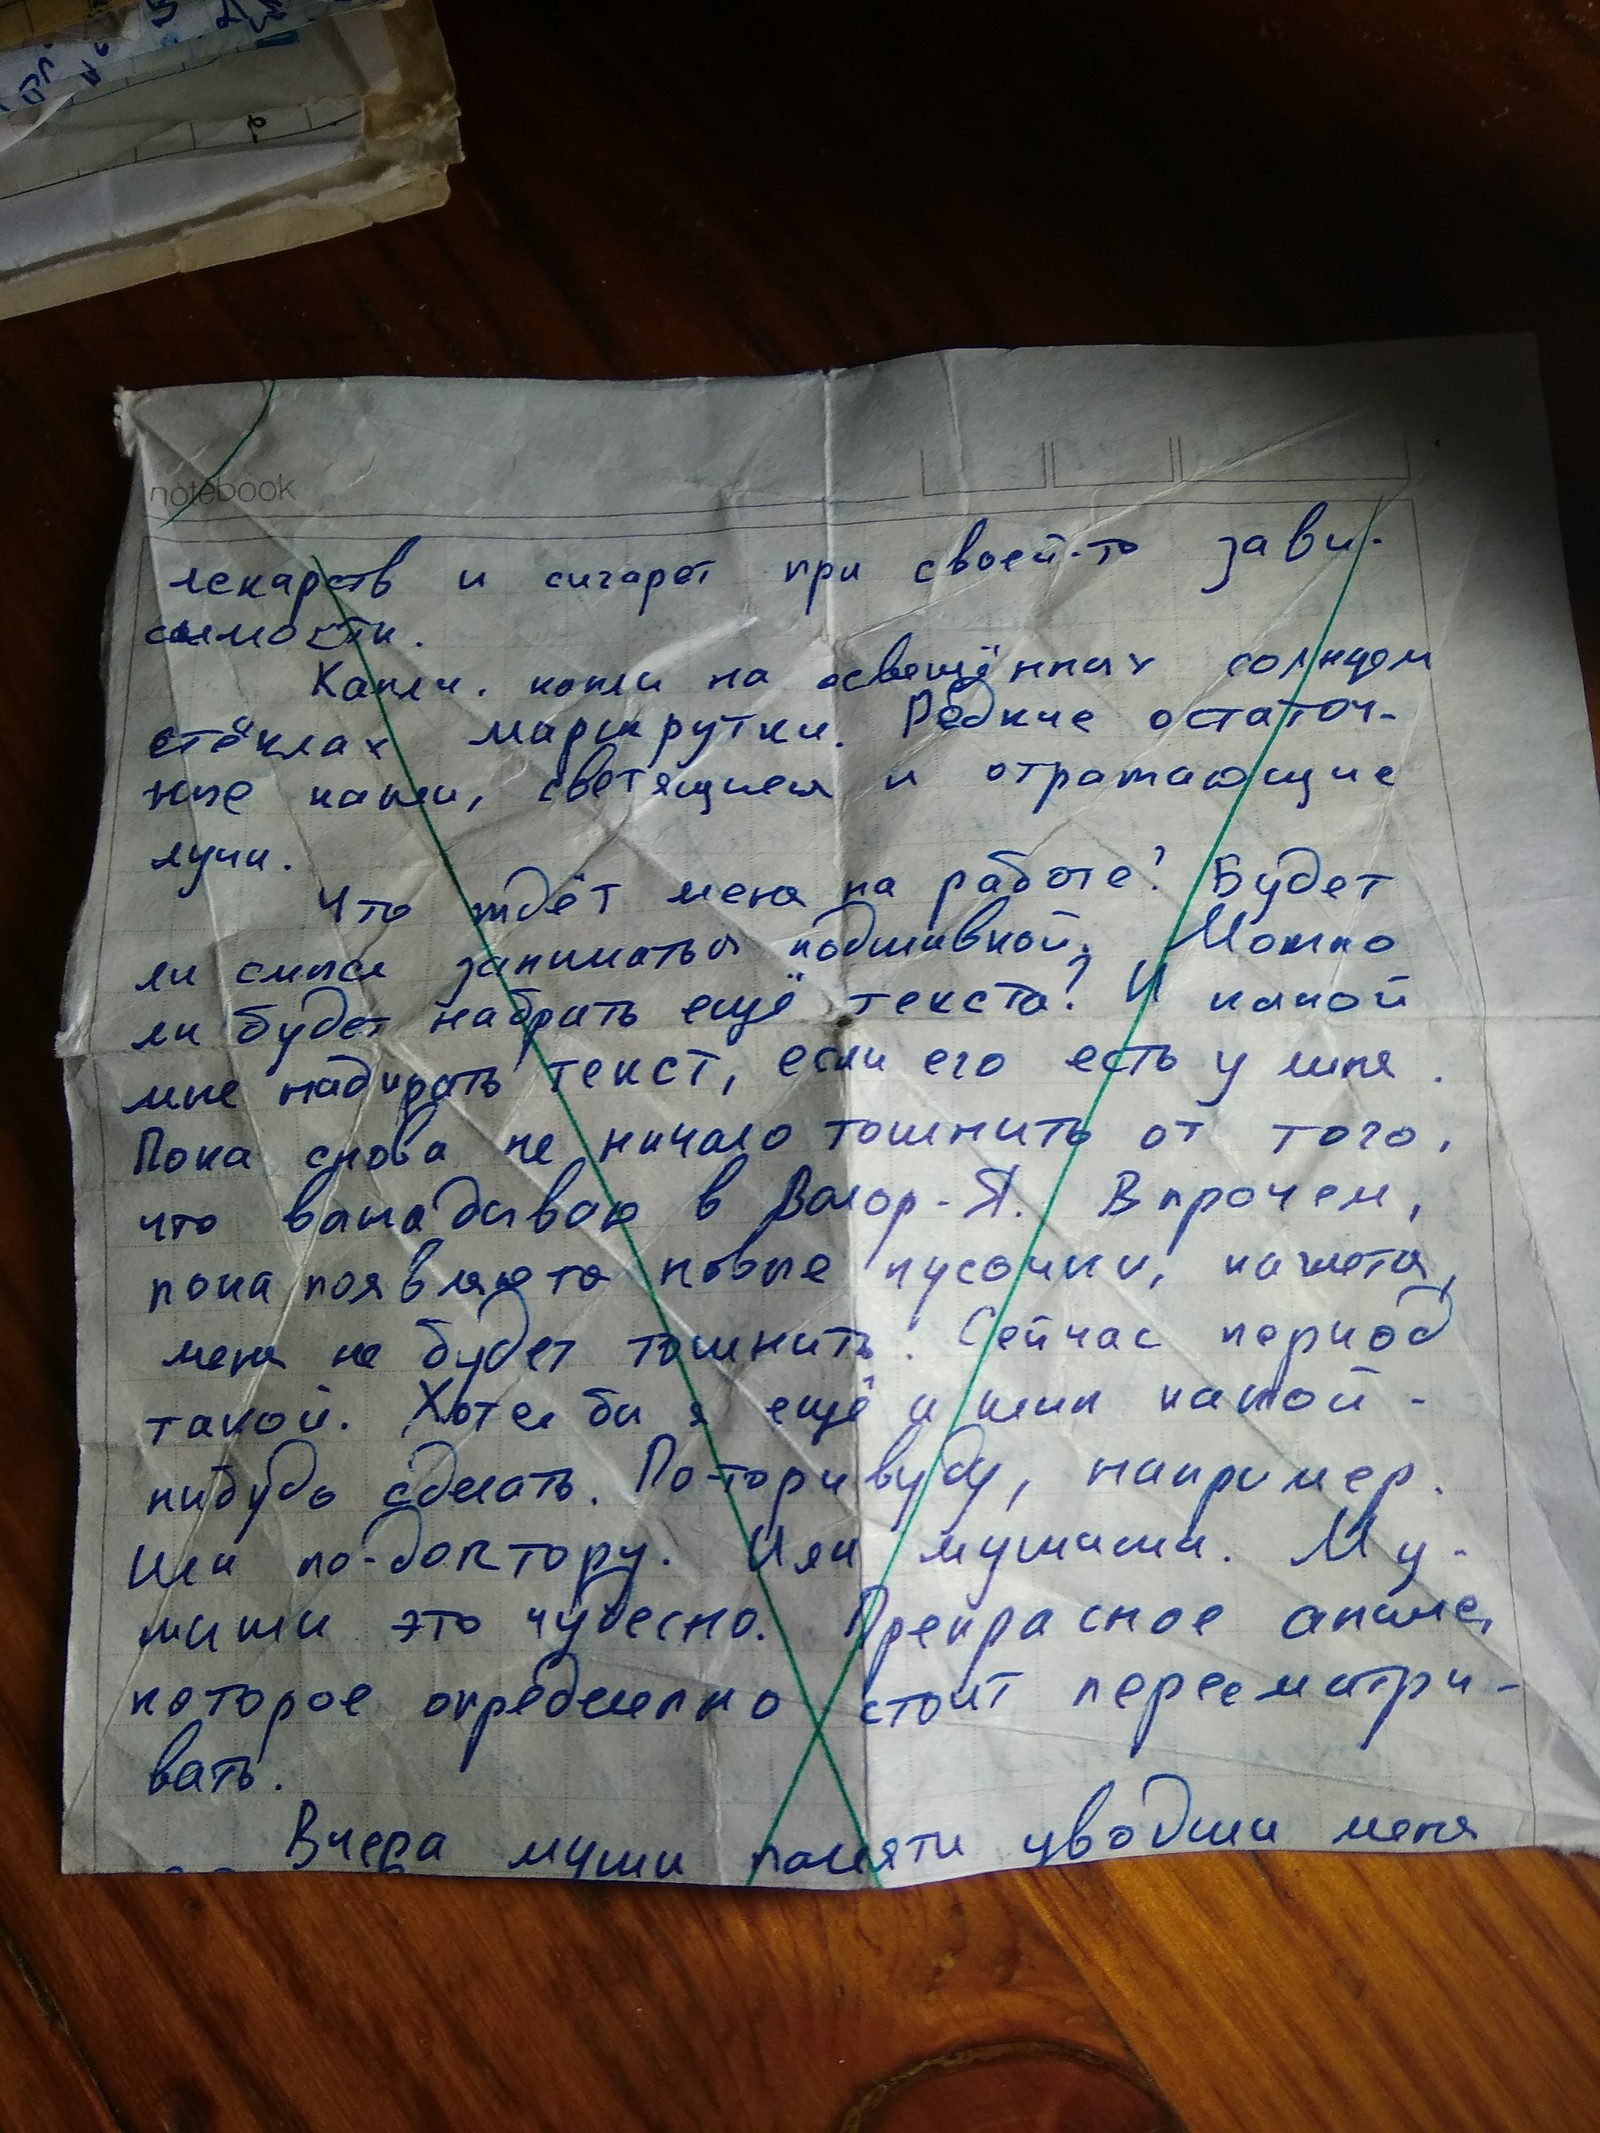 notebook
лекарств и сигарет при своей-то зави-
симости.
Капли. капли на освещённых солнцем
стёклах маршрутки. Редкие остаточ-
ные капли, светящиеся и отражающие
лучи.
Что ждёт меня на работе? Будет
ли смысл заниматься подшивкой. Можно
ли будет набрать ещё текста? И какой
мне набирать текст, если его есть у меня.
Пока снова не начало тошнить от того,
что выкладываю в Самор-Я. Впрочем,
пока появляются новые кусочки, кажется,
меня не будет тошнить. Сейчас период
такой. Хотел бы я ещё и клип какой-
нибудь сделать. По-торчвуду, например.
Или по-доктору. Или мушиши. Му-
шиши это чудесно. Прекрасное аниме,
которое определенно стоит пересматри-
вать.
Вчера муши памяти уводили меня